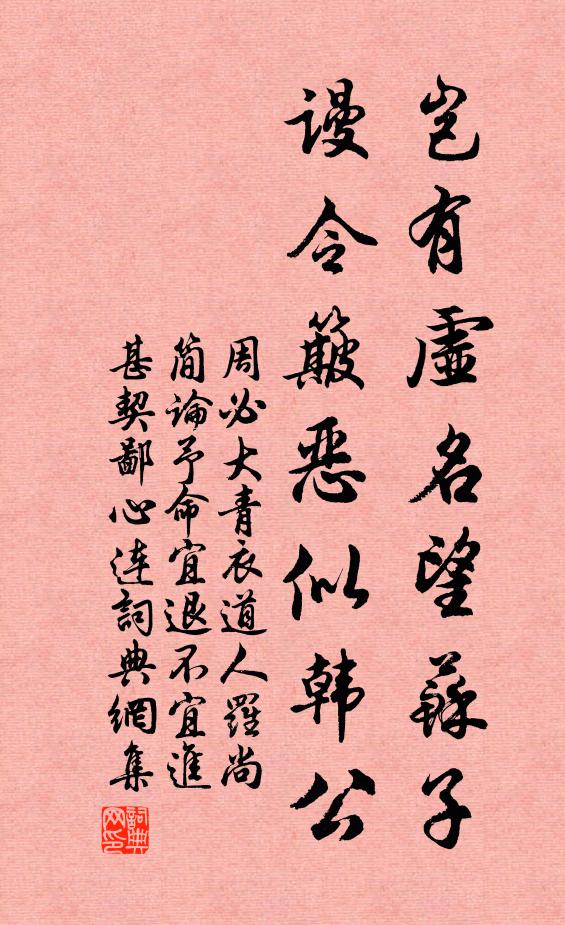 岂有虚名望蘇子
谩令簸恶似韩公
周必大青衣道人羅尚
简論予命宜退不宜進
甚契鄙心连詞典網集
詞典网印